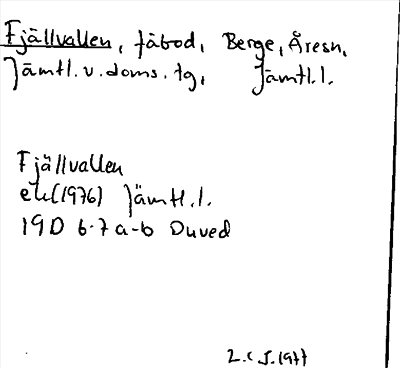 Fjällvallen, fäbod, Berge, Åresn,
Jämtl. v. doms. tg, Jämtl.l.
Fjällvallen
ek(1976) Jämtl.l.
19D 6-7 a-b Duved
1977